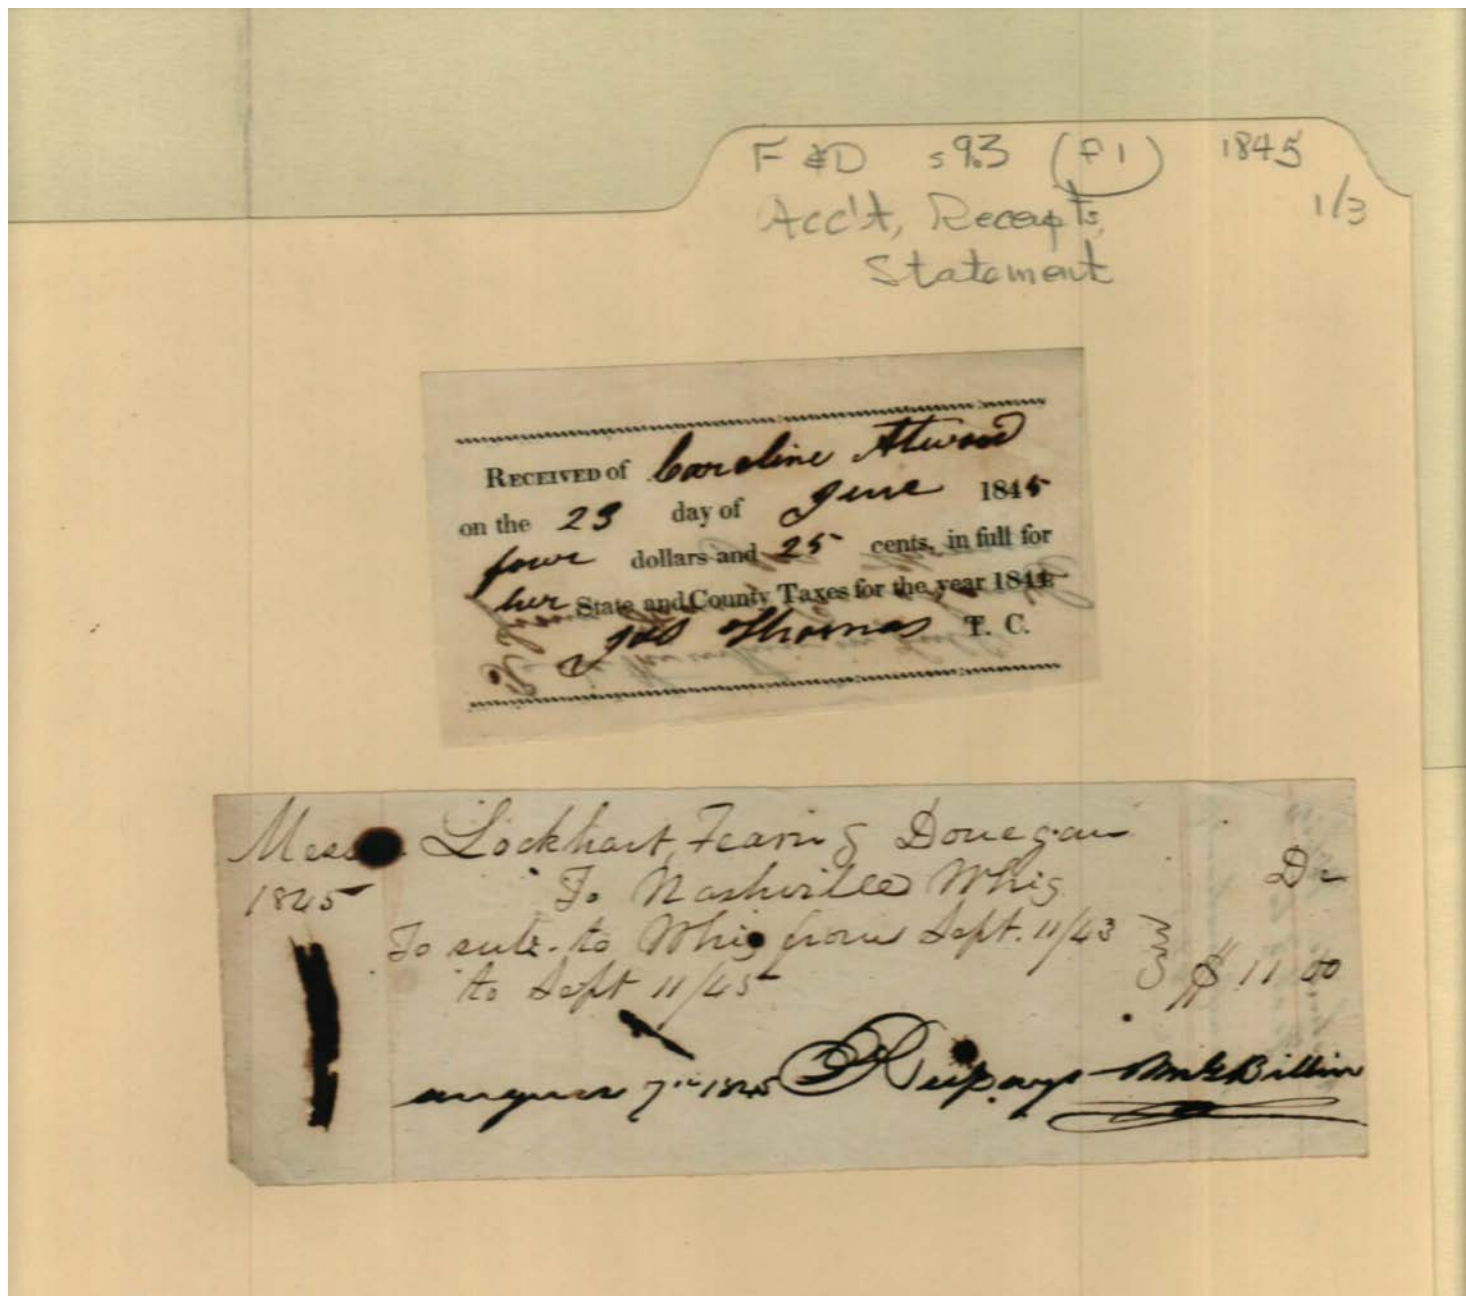 F &D s 9.3 (F1) 1845
1/3
Acc't, Receipts,
Statement
RECEIVED of Caroline Atwood
on the 23 day of June 1845
four dollars and 25 cents, in full for
her State and County Taxes for the year 1844
Jas Thomas T. C.
Mess Lockhart, Fearn & Donegan
1845 To Nashville Whig Dr
To sub. to Whig from Sept. 11/43
to Sept 11/45 $ 11 00
august 7th 1845